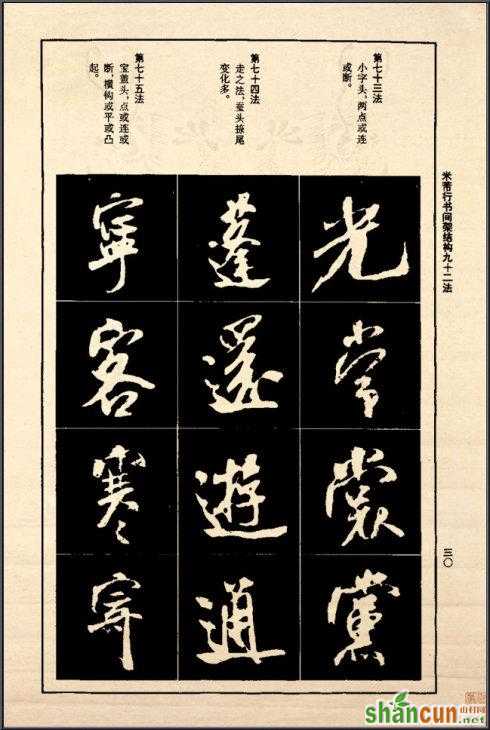 米芾行书间架结构九十二法
三〇
第七十三法
小字头，两点或连
或断。
光
常
裳
黨
第七十四法
走之法，蚕头掠尾
变化多。
蓬
遊
通
第七十五法
宝盖头，点或连或
断，横钩或平或凸
起。
寧
客
寒
shancun
山村网
.net